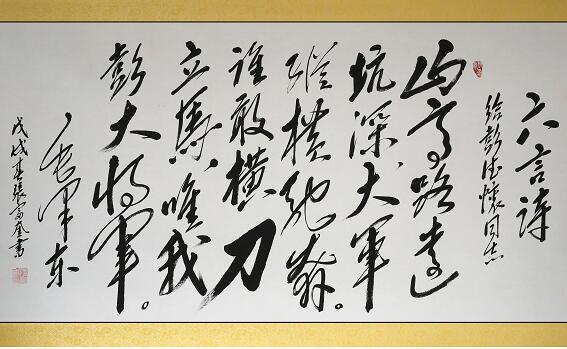 六言诗
给彭德怀同志
山高路远
坑深，大军
纵横驰奔。
谁敢横刀
立马，唯我
彭大将军。
毛泽东
戊戌春張富奎書